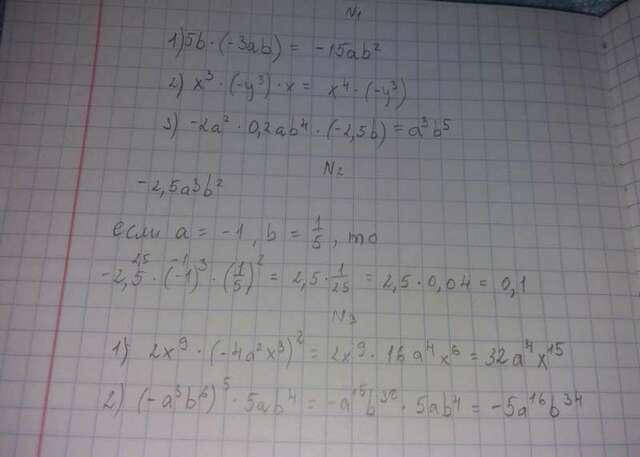 N1
1) 5b · (-3ab) = -15ab²
2) x³ · (-y³) · x = x⁴ · (-y³)
3) -2a² · 0,2ab⁴ · (-2,5b) = a³b⁵
N2
-2,5a³b²
если a = -1, b = 1/5, то
25 -1
-2,5 · (-1)³ · (1/5)² = 2,5 · 1/25 = 2,5 · 0,04 = 0,1
N3
1) 2x⁹ · (-4a²x³)² = 2x⁹ · 16a⁴x⁶ = 32a⁴x¹⁵
2) (-a³b⁶)⁵ · 5ab⁴ = -a¹⁵b³⁰ · 5ab⁴ = -5a¹⁶b³⁴